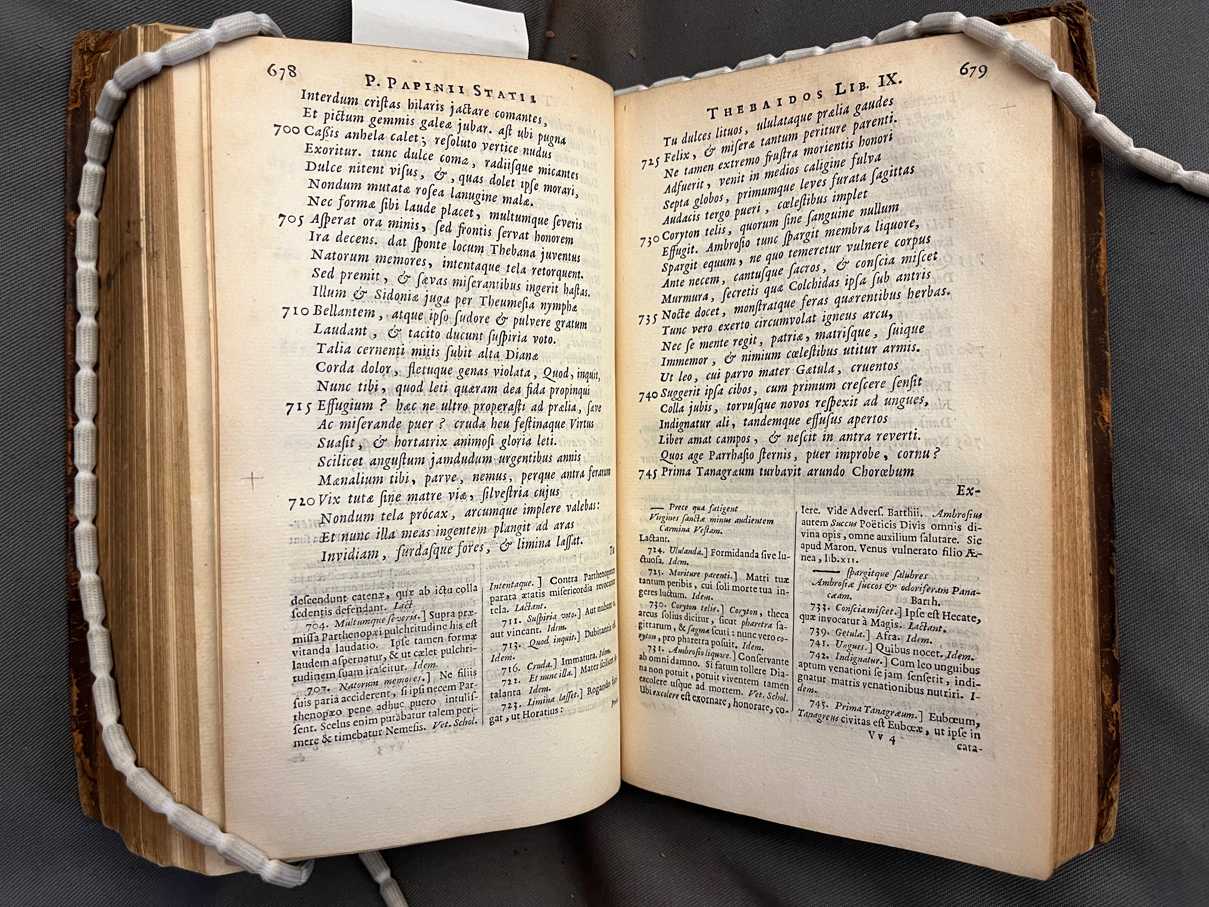 678
P. PAPINII STATII
Interdum criſtas hilaris jactare comantes,
Et pictum gemmis galeæ jubar. aſt ubi pugna
700 Caſſis anhela calet; reſoluto vertice nudus
Exoritur. tunc dulce comæ, radiiſque micantes
Dulce nitent viſus, &, quas dolet ipſe morari,
Nondum mutatæ roſea lanugine malæ.
Nec formæ ſibi laude placet, multumque ſeveris
705 Aſperat ora minis, ſed frontis ſervat honorem
Ira decens. dat ſponte locum Thebana juventus
Natorum memores, intentaque tela retorquent.
Sed premit, & ſævas miſerantibus ingerit haſtas.
Illum & Sidoniæ juga per Theumeſia nymphæ
710 Bellantem, atque ipſo ſudore & pulvere gratum
Laudant, & tacito ducunt ſuſpiria voto.
Talia cernenti mitis ſubit alta Dianæ
Corda dolor, fletuque genas violata, Quod, inquit,
Nunc tibi, quod leti quæram dea fida propinqui
715 Effugium? hæc ne ultro properaſti ad prælia, ſæve
Ac miſerande puer? cruda heu feſtinaque Virtus
Suaſit, & hortatrix animoſi gloria leti.
Scilicet anguſtum jamdudum urgentibus annis
Mænalium tibi, parve, nemus, perque antra ferarum
720 Vix tutæ ſine matre viæ, ſilveſtria cujus
Nondum tela prócax, arcumque implere valebas:
Et nunc illa meas ingentem plangit ad aras
Invidiam, ſurdaſque fores, & limina laſſat.
Tu
deſcendunt catenæ, quæ ab ictu colla
ſedentis defendant. Lact.
704. Multumque ſeveris.] Supra præ-
miſſa Parthenopæi pulchritudine his eſt
vitanda laudatio. Ipſe tamen formæ
laudem aſpernatur, & ut cælet pulchri-
tudinem ſuam iraſcitur. Idem.
707. Natorum memores.] Ne filiis
ſuis paria acciderent, ſi ipſi necem Par-
thenopæo pene adhuc puero intuliſ-
ſent. Scelus enim putabatur talem peri-
mere & timebatur Nemeſis. Vet. Schol.
Intentaque.] Contra Parthenopæum
parata ætatis miſericordia revocant
tela. Lactant.
711. Suſpiria voto.] Aut nubant,
aut vincant. Idem.
713. Quod inquit.] Dubitantis
Idem.
716. Cruda.] Immatura. Idem.
722. Et nunc illa.] Mater ſcilicet A-
talanta Idem.
723. Limina laſſat.] Rogando
gat, ut Horatius:
679
THEBAIDOS LIB. IX.
Tu dulces lituos, ululataque prælia gaudes
725 Felix, & miſeræ tantum periture parenti.
Ne tamen extremo fruſtra morientis honori
Adfuerit, venit in medios caligine fulva
Septa globos, primumque leves furata ſagittas
Audacis tergo pueri, cœleſtibus implet
730 Coryton telis, quorum ſine ſanguine nullum
Effugit. Ambroſio tunc ſpargit membra liquore,
Spargit equum, ne quo temeretur vulnere corpus
Ante necem, cantuſque ſacros, & conſcia miſcet
Murmura, ſecretis quæ Colchidas ipſa ſub antris
735 Nocte docet, monſtratque feras quærentibus herbas.
Tunc vero exerto circumvolat igneus arcu,
Nec ſe mente regit, patriæ, matriſque, ſuique
Immemor, & nimium cœleſtibus utitur armis.
Ut leo, cui parvo mater Gætula, cruentos
740 Suggerit ipſa cibos, cum primum creſcere ſenſit
Colla jubis, torvuſque novos reſpexit ad ungues,
Indignatur ali, tandemque effuſus apertos
Liber amat campos, & neſcit in antra reverti.
Quos age Parrhaſio ſternis, puer improbe, cornu?
745 Prima Tanagræum turbavit arundo Chorœbum
Ex-
— Prece qua fatigent
Virgines ſanctæ minus audientem
Carmina Veſtam.
Lactant.
724. Ululanda.] Formidanda ſive lu-
ctuoſa. Idem.
725. Moriture parenti.] Matri tuæ
tantum peribis, cui ſoli morte tua in-
geres luctum. Idem.
730. Coryton telis.] Coryton, theca
arcus ſolius dicitur, ſicut pharetra ſa-
gittarum, & ſagma ſcuti: nunc vero co-
ryton, pro pharetra poſuit. Idem.
731. Ambroſio liquore.] Conſervante
ab omni damno. Si fatum tollere Dia-
na non potuit, potuit viventem tamen
excolere uſque ad mortem. Vet. Schol.
Ubi excolere eſt exornare, honorare, co-
lere. Vide Adverſ. Barthii. Ambroſius
autem Succus Poëticis Divis omnis di-
vina opis, omne auxilium ſalutare. Sic
apud Maron. Venus vulnerato filio Æ-
nea, lib. XII.
— ſpargitque ſalubres
Ambroſiæ ſuccos & odoriferam Pana-
cæam. Barth.
733. Conſcia miſcet.] Ipſe eſt Hecate,
quæ invocatur à Magis. Lactant.
739. Getula.] Afra. Idem.
741. Ungues.] Quibus nocet. Idem.
742. Indignatur.] Cum leo unguibus
aptum venationi ſe jam ſenſerit, indi-
gnatur matris venationibus nutriri. I-
dem.
745. Prima Tanagræum.] Eubœum,
Tanagreus civitas eſt Eubœæ, ut ipſe in
Vv 4
cata-